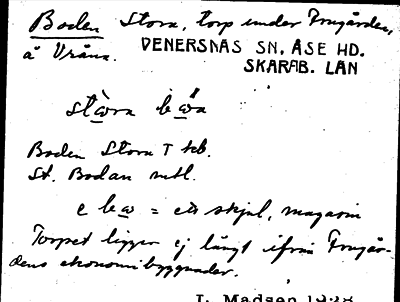 Boden Stora, torp under Frugården,
å Vråna.
VENERSNÄS SN, ÅSE HD.
SKARAB. LÄN
Boden Stora T kb.
St. Bodan mtl.
= ett skjul, magasin
Torpet ligger ej långt ifrån Frugår-
dens ekonomibyggnader.
Madsen